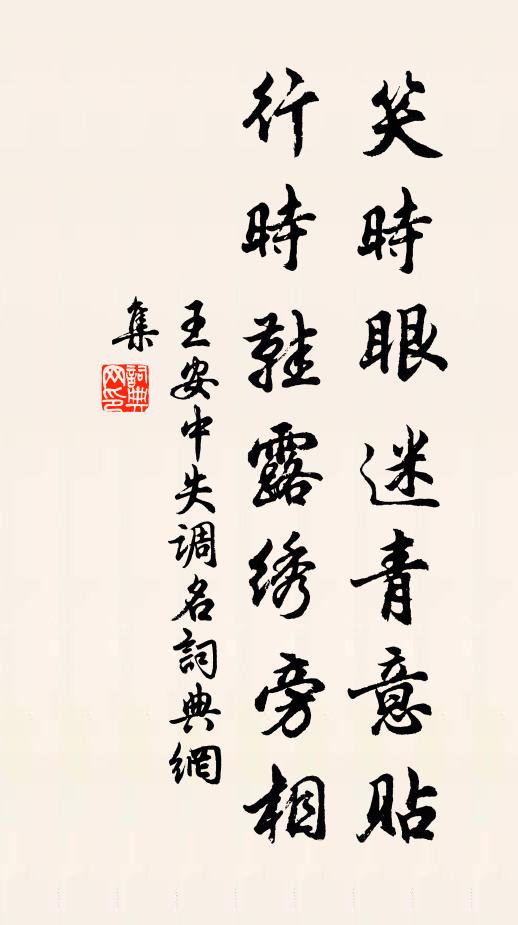 笑時眼迷青意貼
行時鞋露绣旁相
王安中失调名詞典網
集
詞典
网印